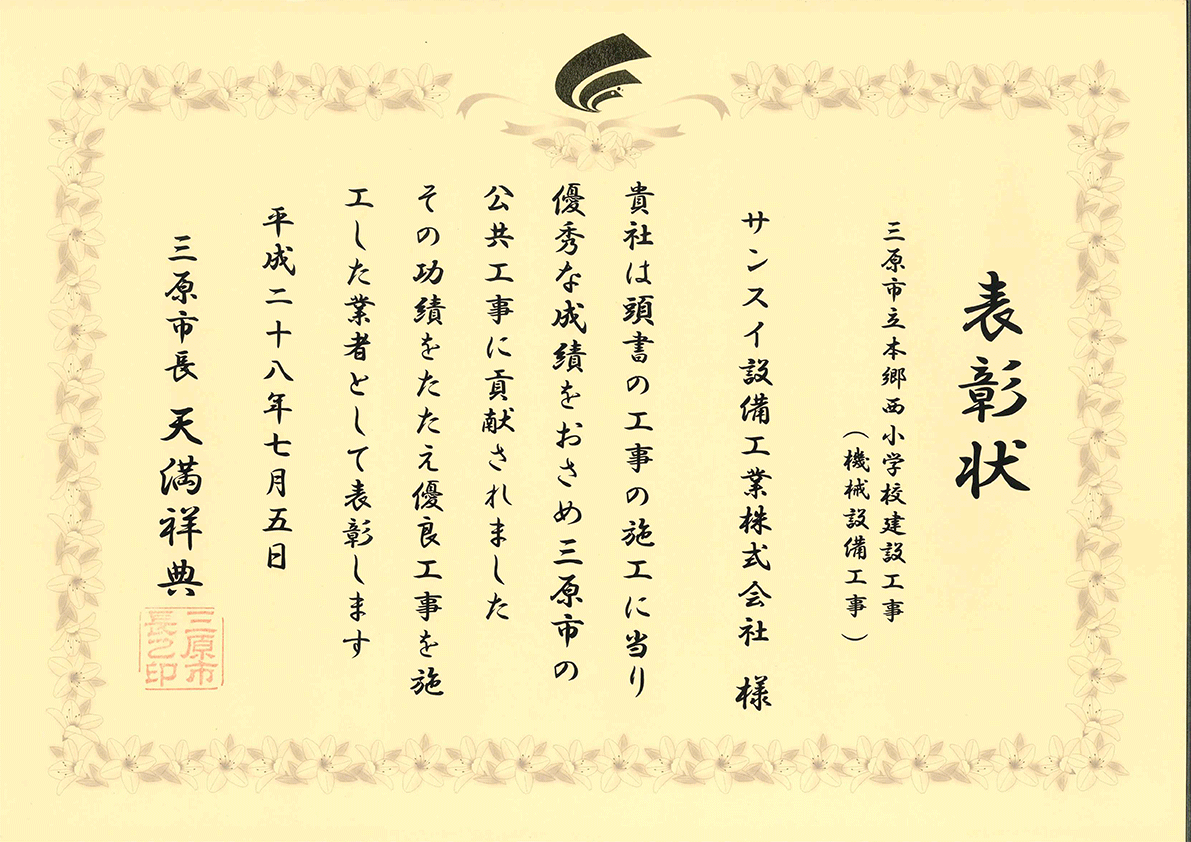 表彰状
三原市立本郷西小学校建設工事
（機械設備工事）
サンスイ設備工業株式会社 様
貴社は頭書の工事の施工に当り
優秀な成績をおさめ三原市の
公共工事に貢献されました
その功績をたたえ優良工事を施
工した業者として表彰します
平成二十八年七月五日
三原市長 天満祥典
三原市
長之印